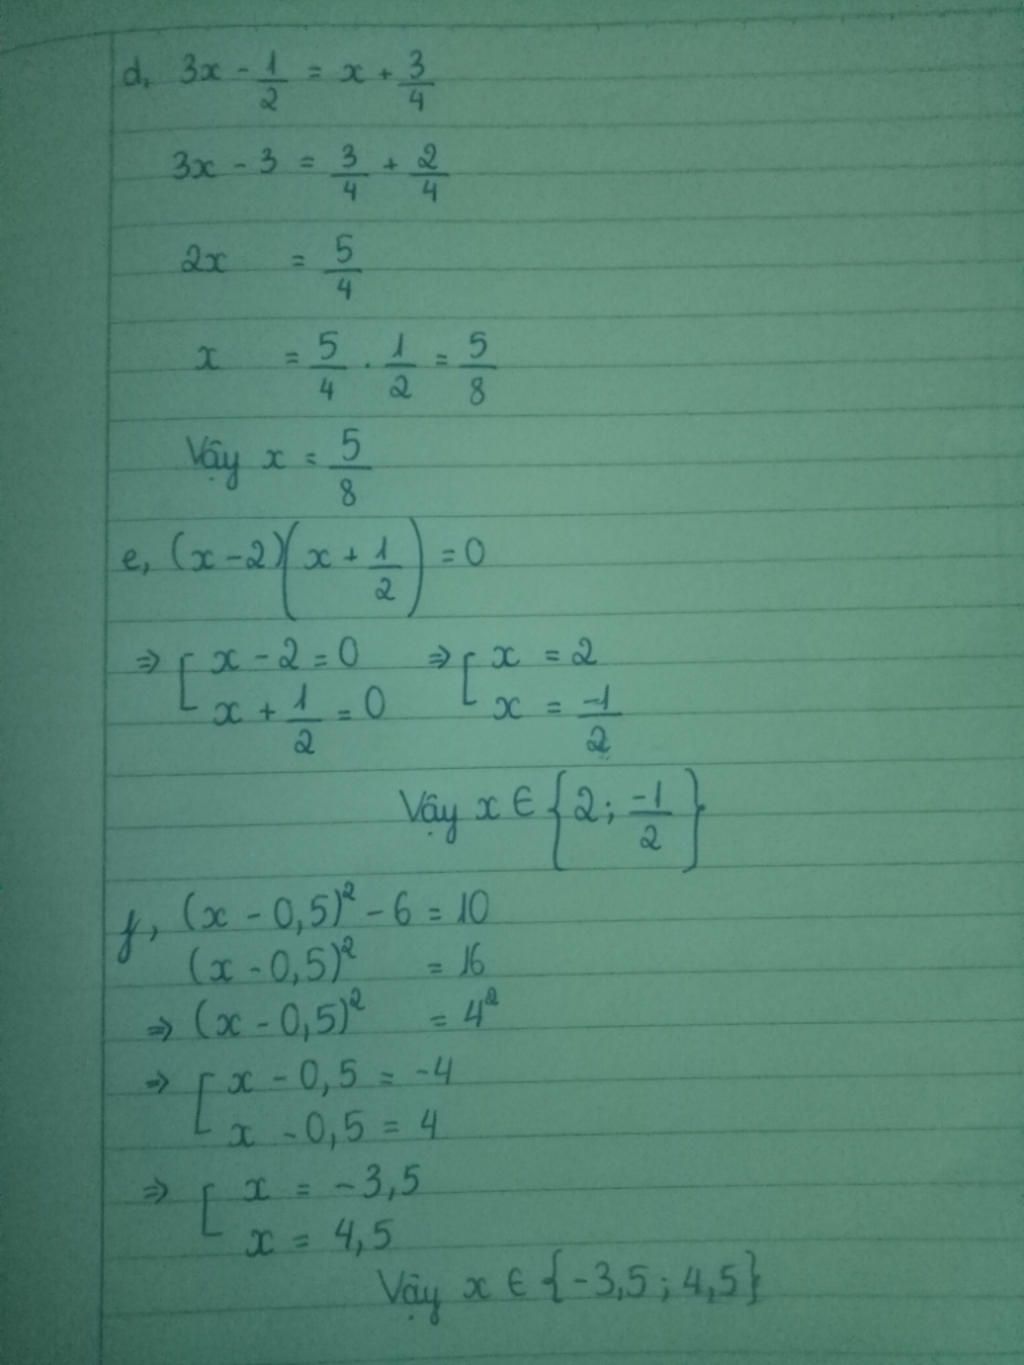 d, 3x - 1/2 = x + 3/4
3x - 3 = 3/4 + 2/4
2x = 5/4
x = 5/4 . 1/2 = 5/8
Vậy x = 5/8
e, (x - 2)(x + 1/2) = 0
⇒ [ x - 2 = 0 ⇒ [ x = 2
x + 1/2 = 0 x = -1/2
Vậy x ∈ {2; -1/2}
f, (x - 0,5)² - 6 = 10
(x - 0,5)² = 16
⇒ (x - 0,5)² = 4²
⇒ [ x - 0,5 = -4
x - 0,5 = 4
⇒ [ x = -3,5
x = 4,5
Vậy x ∈ {-3,5; 4,5}